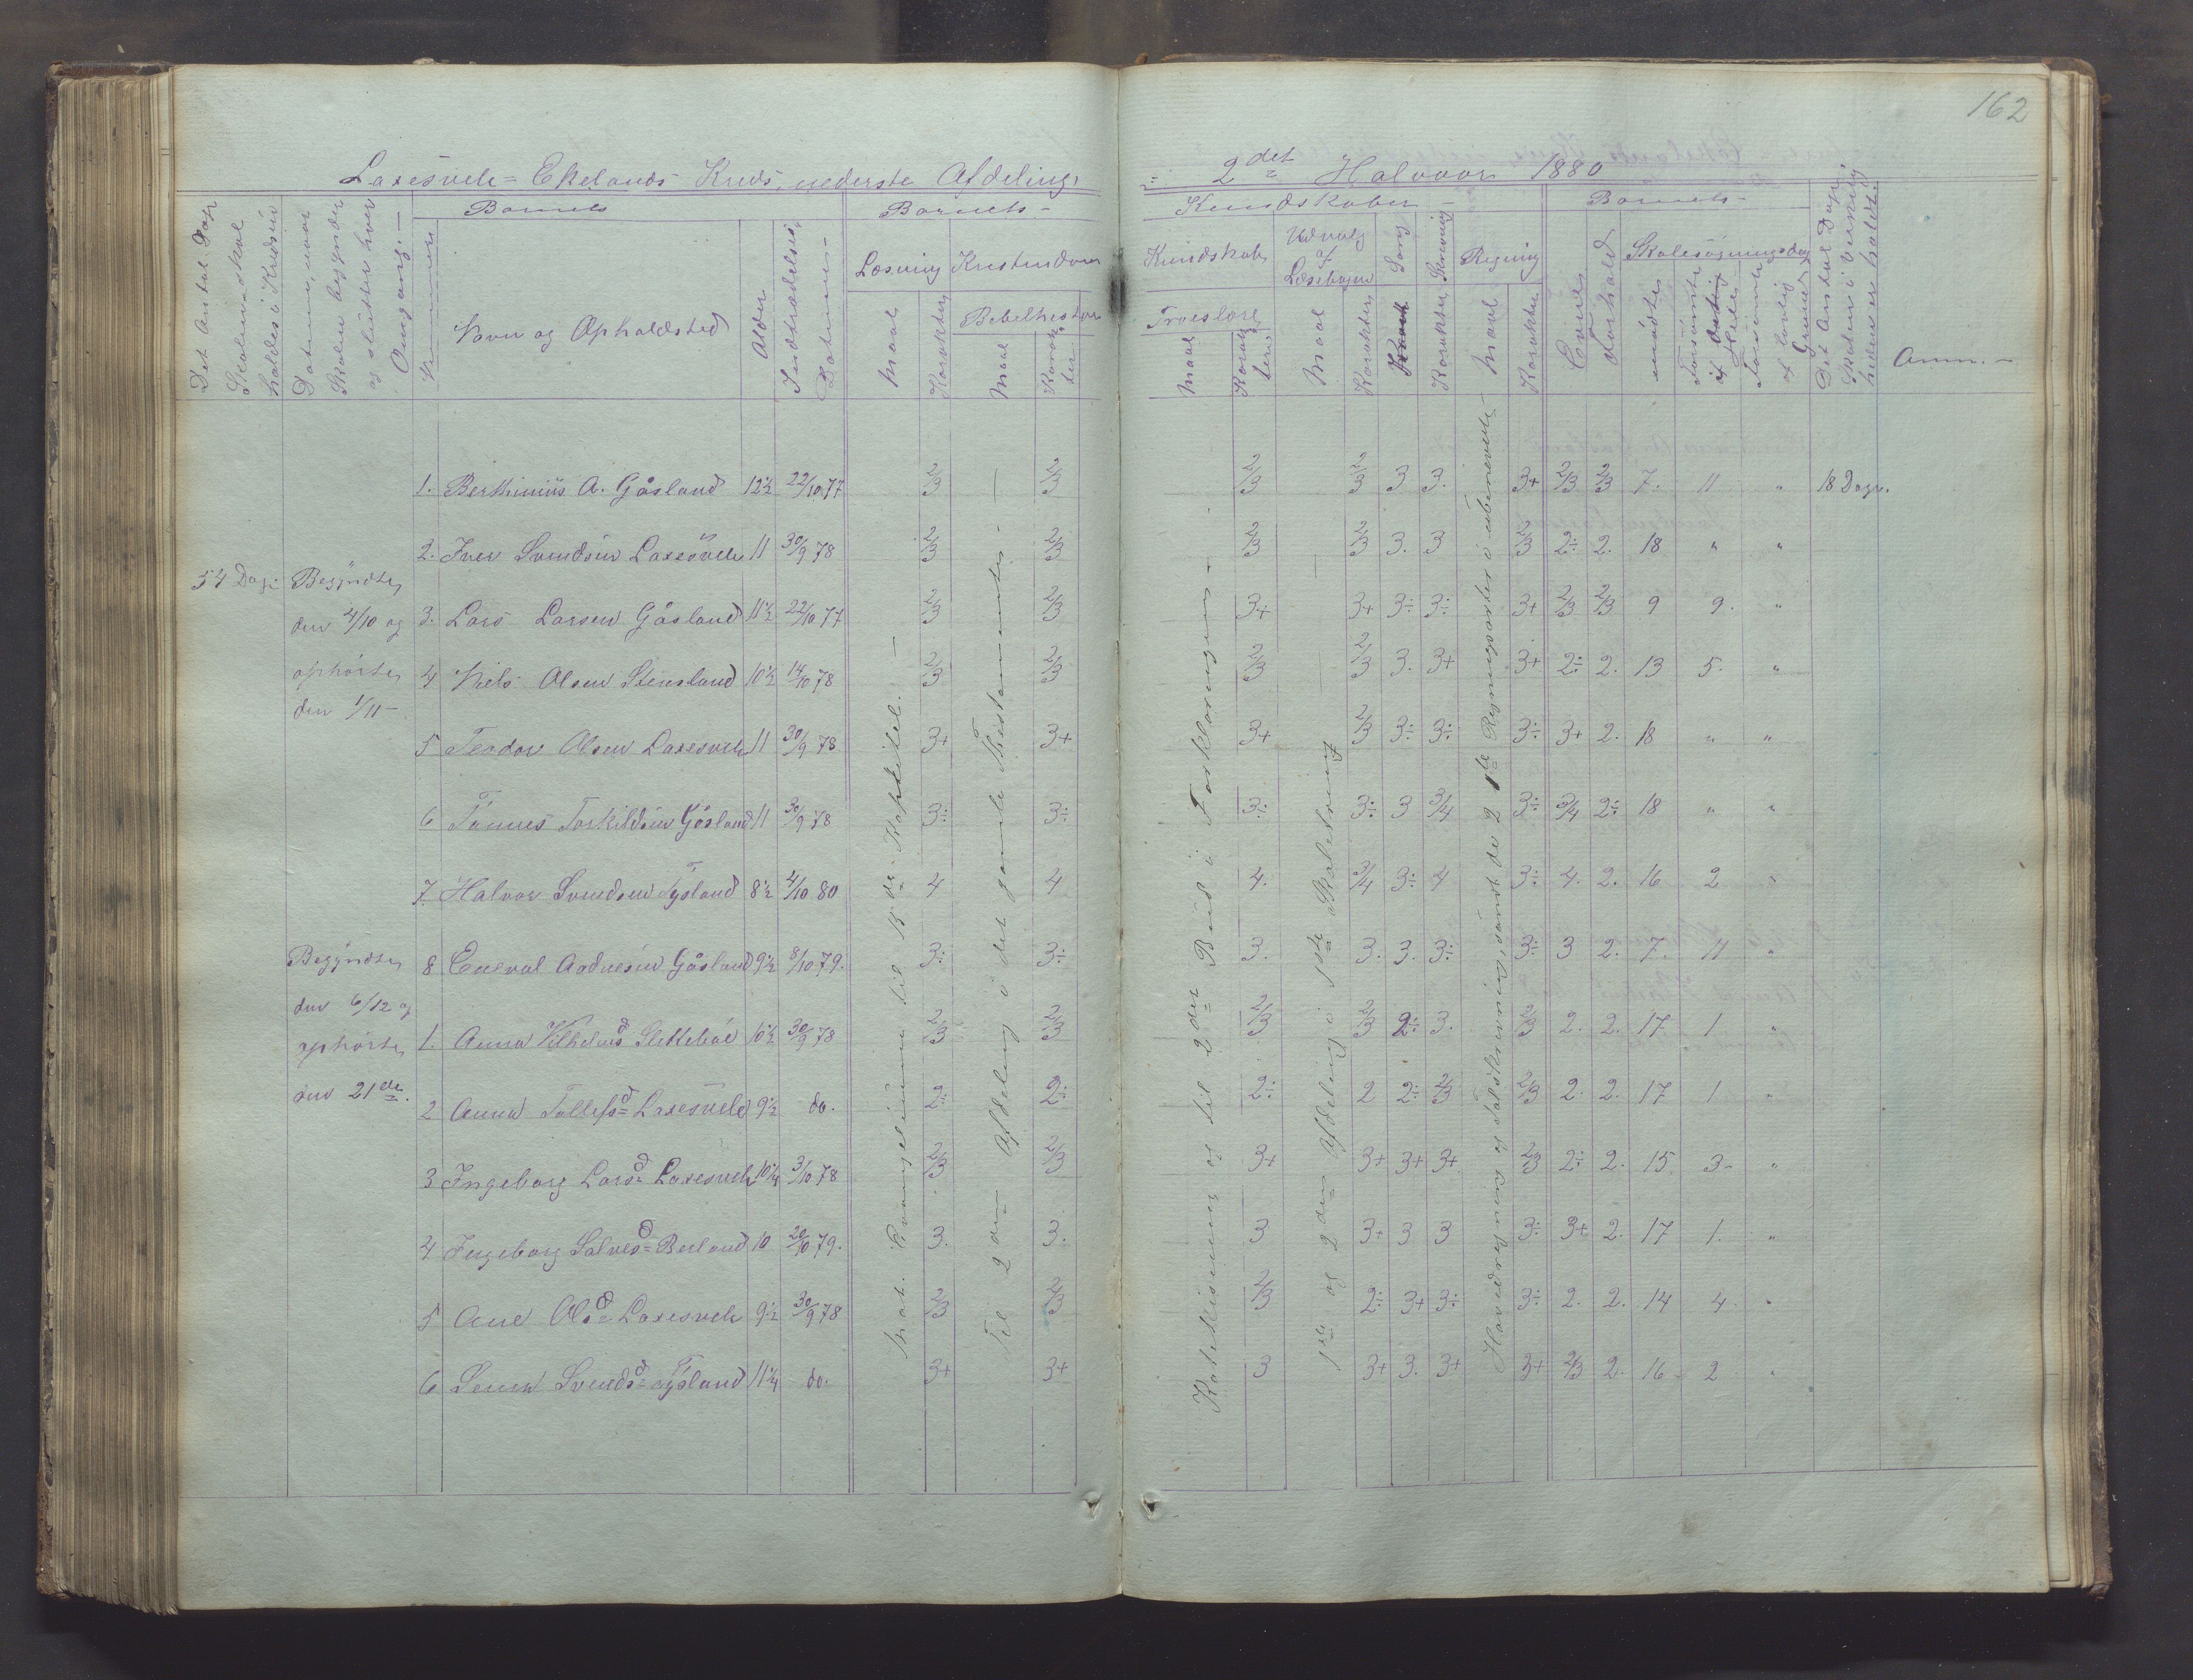 162
Laxesvele = Ekelands Kreds, nederste Afdeling,
= 2det Halvaar 1880
Det Antal Dage
Skolen skal
holdes i Kredsen
Datum, naar
Skolen begynder
og slutter hver
Omgang. —
Barnets
Nummer
Navn og Opholdsted
Alder
Indtrædelses
Datum —
Barnets —
Læsning
Maal
Karakter
Kristendoms
Bibelhistorie
Maal
Karakter
Kundskaber —
Kundskab
Troeslære
Maal
Karakter
Udvalg
af
Læsebogen
Maal
Karakter
Sang
Skrivning
Karakter
Regning
Maal
Karakter
Barnets —
Evner
Forhold
Skolesøgningsdage
mødte
Forsømte
af
Hele
Forsømte
af lovlig
Grund
Det Antal Dage
Skolen i Virkelig
heden er holdt:
Anm. —
54 Dage
Begyndte
den 4/10 og
ophørte
den 1/11 —
Begyndte
den 6/12 og
ophørte
den 21de.
1. Berthinius A. Gåsland 12½ 22/10 77 2/3 2/3 2/3 2/3 3 3. 3+ 2/3 2/3 7. 11 " 18 Dage.
2. Iver Svendsen Laxesvele 11 30/9 78 2/3 2/3 2/3 2/3 3. 3 2/3 2÷ 2. 18 " "
3. Lars Larsen Gåsland 11½ 22/10 77 2/3 2/3 3+ 3+ 3÷ 3÷ 3+ 2/3 2/3 9 9. "
4 Niels Olsen Stensland 10½ 14/10 78 2/3 2/3 2/3 2/3 3. 3+ 3+ 2÷ 2. 13 5. "
5 Teodor Olsen Laxesvele 11 30/9 78 3+ 3+ 3+ 2/3 3÷ 3÷ 3÷ 3+ 2. 18 " "
6 Tønnes Torkildsen Gåsland 11 30/9 78 3÷ 3÷ 3÷ 3÷ 3 3/4 3÷ 3/4 2÷ 18 " "
7 Halvor Svendsen Tysland 8½ 4/10 80 4 4 4. 3/4 3÷ 4 3÷ 4. 2. 16 2 "
8 Enevald Andresen Gåsland 9½ 8/10 79. 3÷ 3÷ 3. 3. 3. 3÷ 3÷ 3 2. 7. 11 "
1. Anna Vilhelmsd 10½ 30/9 78 2/3 2/3 2/3 2/3 2÷ 3. 2/3 2. 2. 17 1 "
2 Anna Tollefsd Laxesvele 9½ do. 2÷ 2÷ 2÷ 2 2÷ 2/3 2/3 2. 2. 17 1 "
3 Ingeborg Larsd Laxesvele 10¼ 3/10 78 2/3 2/3 3+ 3+ 3+ 3+ 2/3 2÷ 2. 15. 3 "
4 Ingeborg Salvesd Berland 10 20/10 79. 3. 3. 3 3+ 3 3 3÷ 3+ 2. 17 1. "
5 Ane Olsd Laxesvele 9½ 30/9 78 2/3 2/3 2/3 2÷ 3+ 3÷ 3÷ 2. 2. 14 4 "
6 Lena Svendsd Tysland 11¼ do. 3+ 3+ 3 3+ 3. 3+ 3+ 2/3 2. 16 2 "
Evangelium til 15de Kapitel. —
Til 2den Afdeling i det gamle Testamente. —
Katekismus og til 2det Bud i Forklaringen —
1ste og 2den Afdeling i 1ste Skoletrin
Hovedregning og Talskrivning, samt de 2 1ste Regningsarter i ubenævnte —